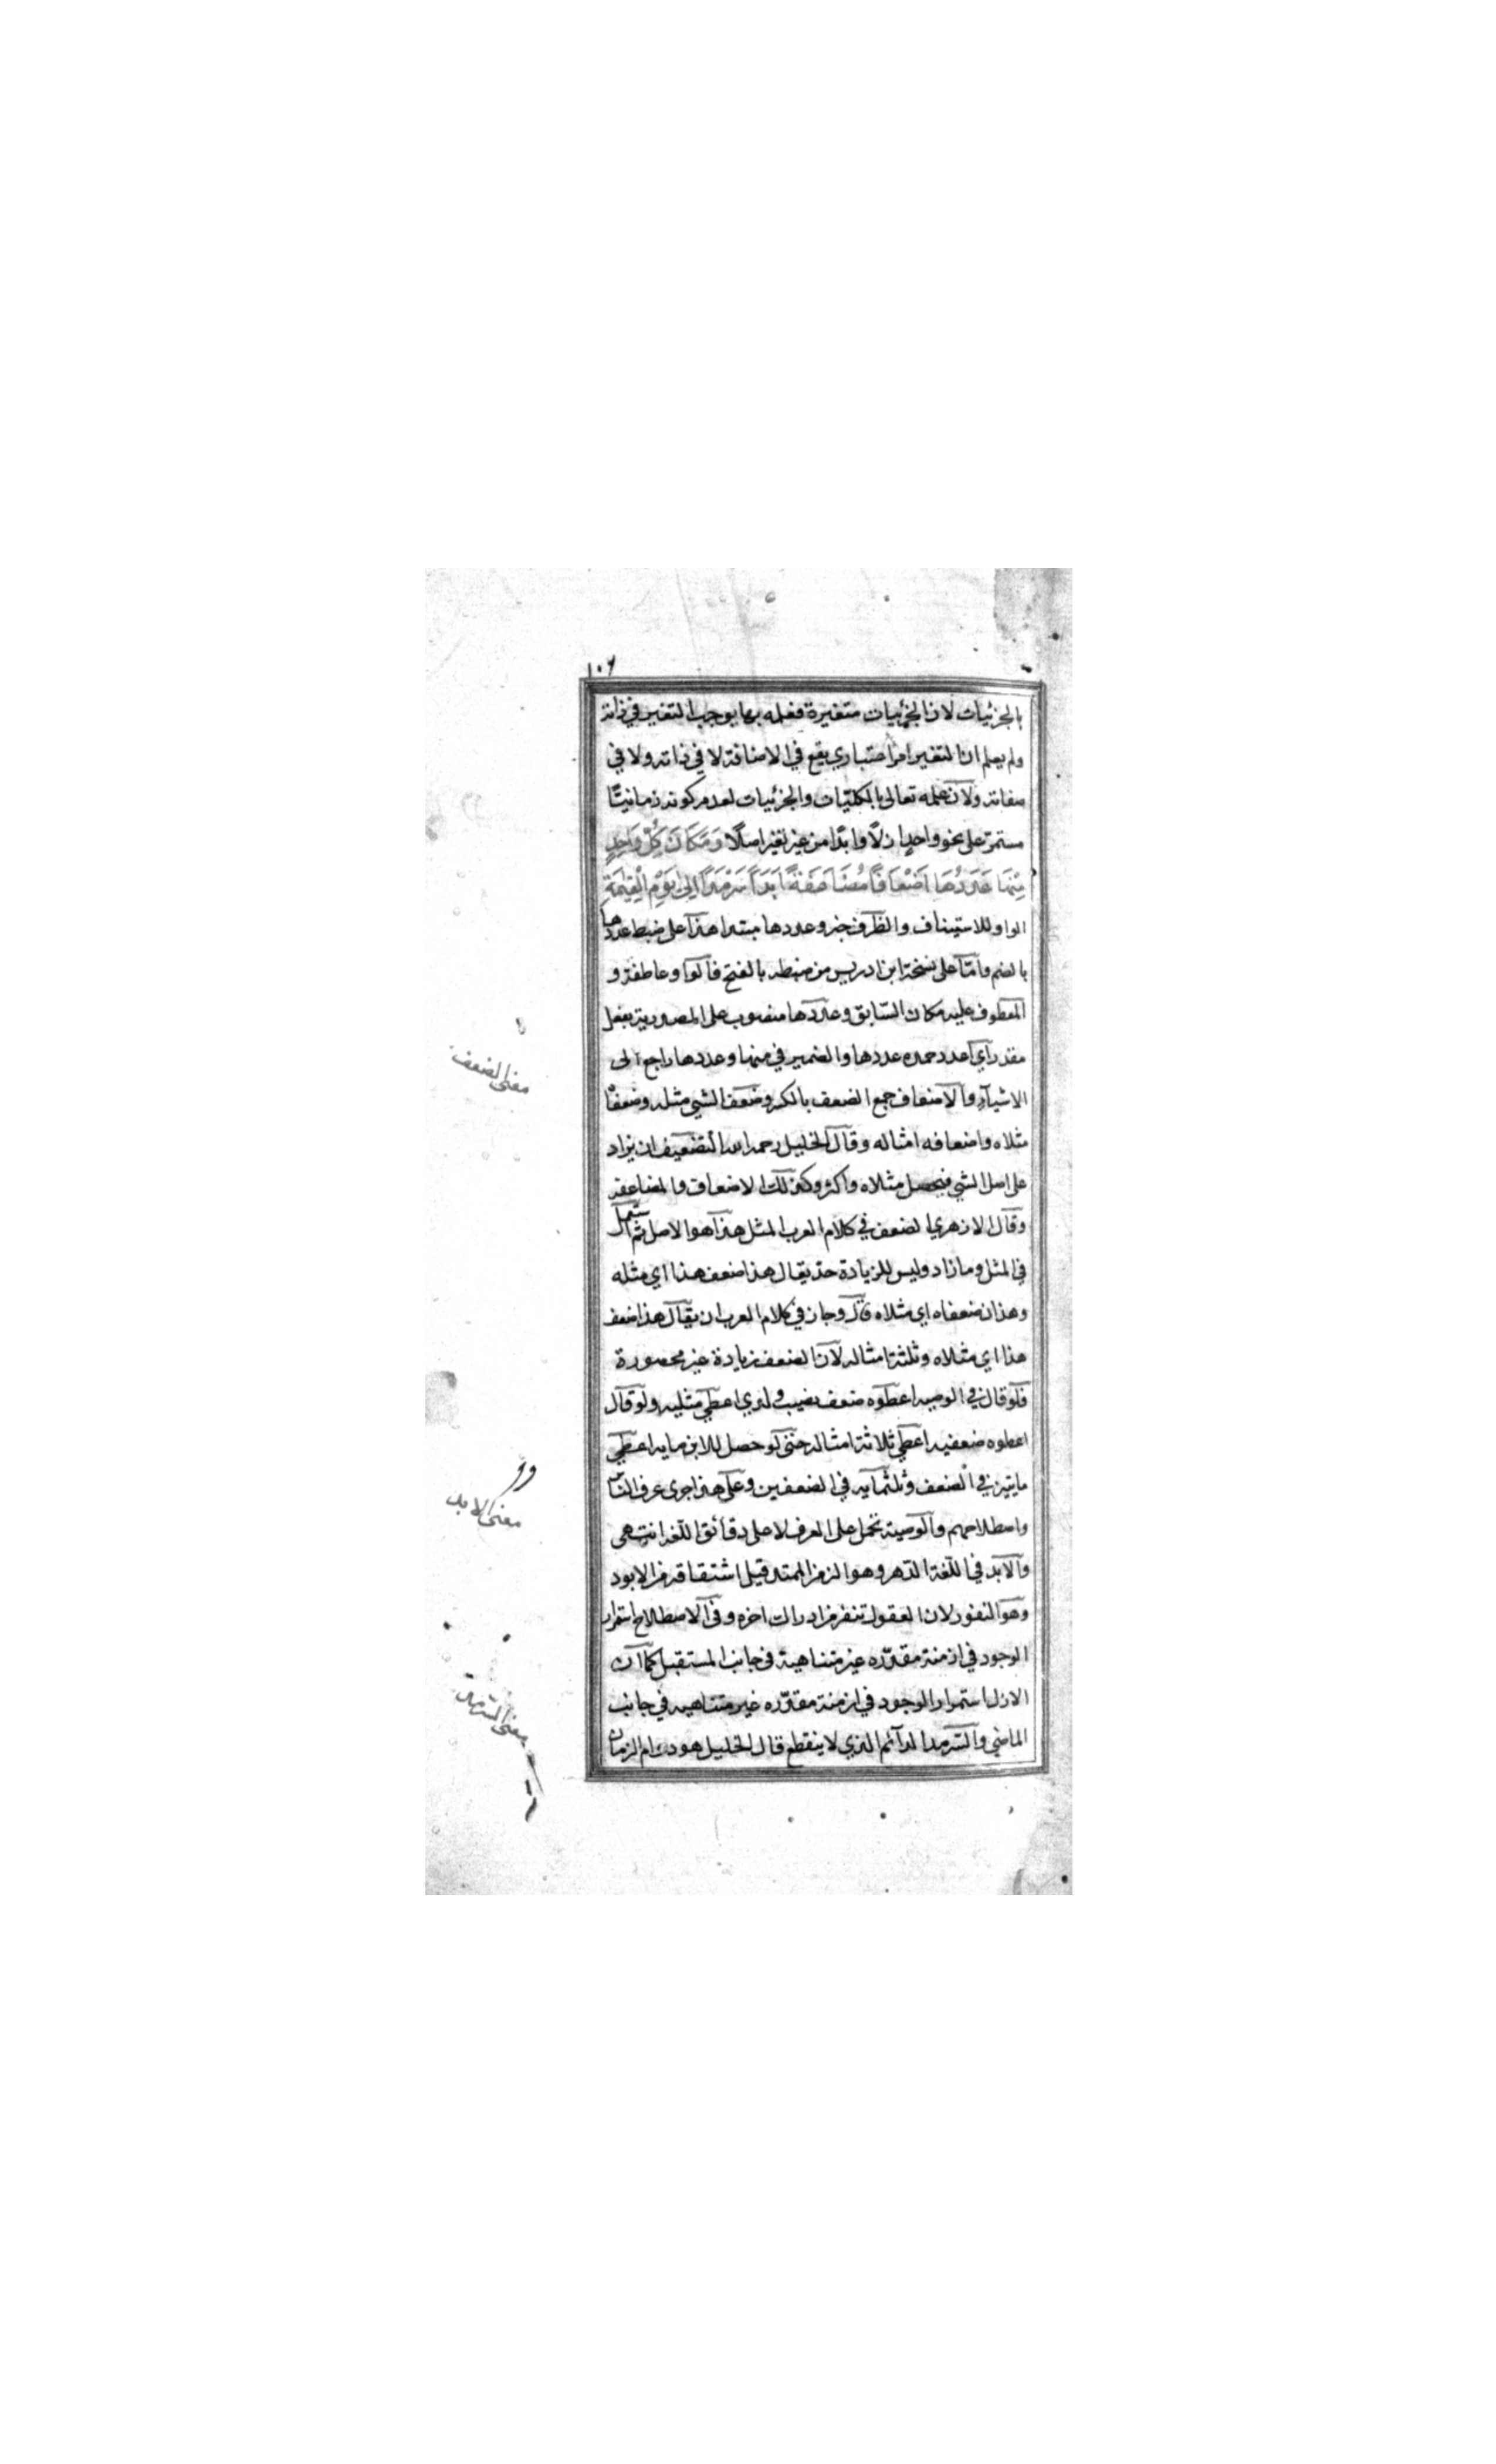 ١٠٦
بالجزئيات لان الجزئيات متغيرة فعلمه بها يوجب التغير في ذاته
ولم يعلم ان التغير امر اعتباري يقع في الاضافة لا في ذاته ولا في
صفاته ولان علمه تعالى بالكليّات والجزئيات لعدم كونه زمانيّا
مستمر على نحو واحد ازلًا وابدًا من غير تغير اصلًا وَمَكَانَ كُلِّ وَاحِدٍ
مِنْهَا عَدَدُهَا اَضْعَافًا مُضَاعَفَةً اَبَدًا سَرْمَدًا اِلىٰ يَوْمِ الْقِيٰمَةِ
الواو للاستيناف والظرف خبر وعددها مبتدا هذا على ضبط عددها
بالضم وامّا على نسخة ابن ادريس من ضبطه بالفتح فالواو عاطفة و
المعطوف عليه مكان السّابق وعددها منصوب على المصدرية بفعل
مقدر اي اعدد حمده عددها والضمير في منها وعددها راجع الى
الاشيآء والاضعاف جمع الضعف بالكسر وضعف الشي مثله وضعفاه
مثلاه واضعافه امثاله وقال الخليل رحمه الله التضعيف ان يزاد
على اصل الشي فيحصل مثلاه واكثر وكذلك الاضعاف والمضاعفة
وقال الازهري الضعف في كلام العرب المثل هذا هو الاصل ثم استعمل
في المثل وما زاد وليس للزيادة حد يقال هذا ضعف هذا اي مثله
وهذان ضعفاه اي مثلاه قال وجاز في كلام العرب ان يقال هذا ضعف
هذا اي مثلاه وثلثة امثاله لان الضعف زيادة غير محصورة
فلو قال في الوصيه اعطوه ضعف نصيب ولدي اعطي مثليه ولو قال
اعطوه ضعفيه اعطي ثلاثة امثاله حتى لو حصل للابن مايه اعطي
مايتين في الضعف وثلثمايه في الضعفين وعلى هذا جرى عرف الناس
واصطلاحهم والوصية تحمل على العرف لا على دقائق اللّغه انتهى
والابد في اللّغة الدّهر وهو الزمن الممتد قيل اشتقاقه من الابود
وهو النفور لان العقول تنفر من ادراك اخره وفي الاصطلاح استمرار
الوجود في ازمنة مقدّره غير متناهية في جانب المستقبل كما ان
الازل استمرار الوجود في ازمنة مقدّره غير متناهيه في جانب
الماضي والسّرمد الدآئم الذي لا ينقطع قال الخليل هو دوام الزمان
معنى الضعف
معنى الابد
معنى السرمد